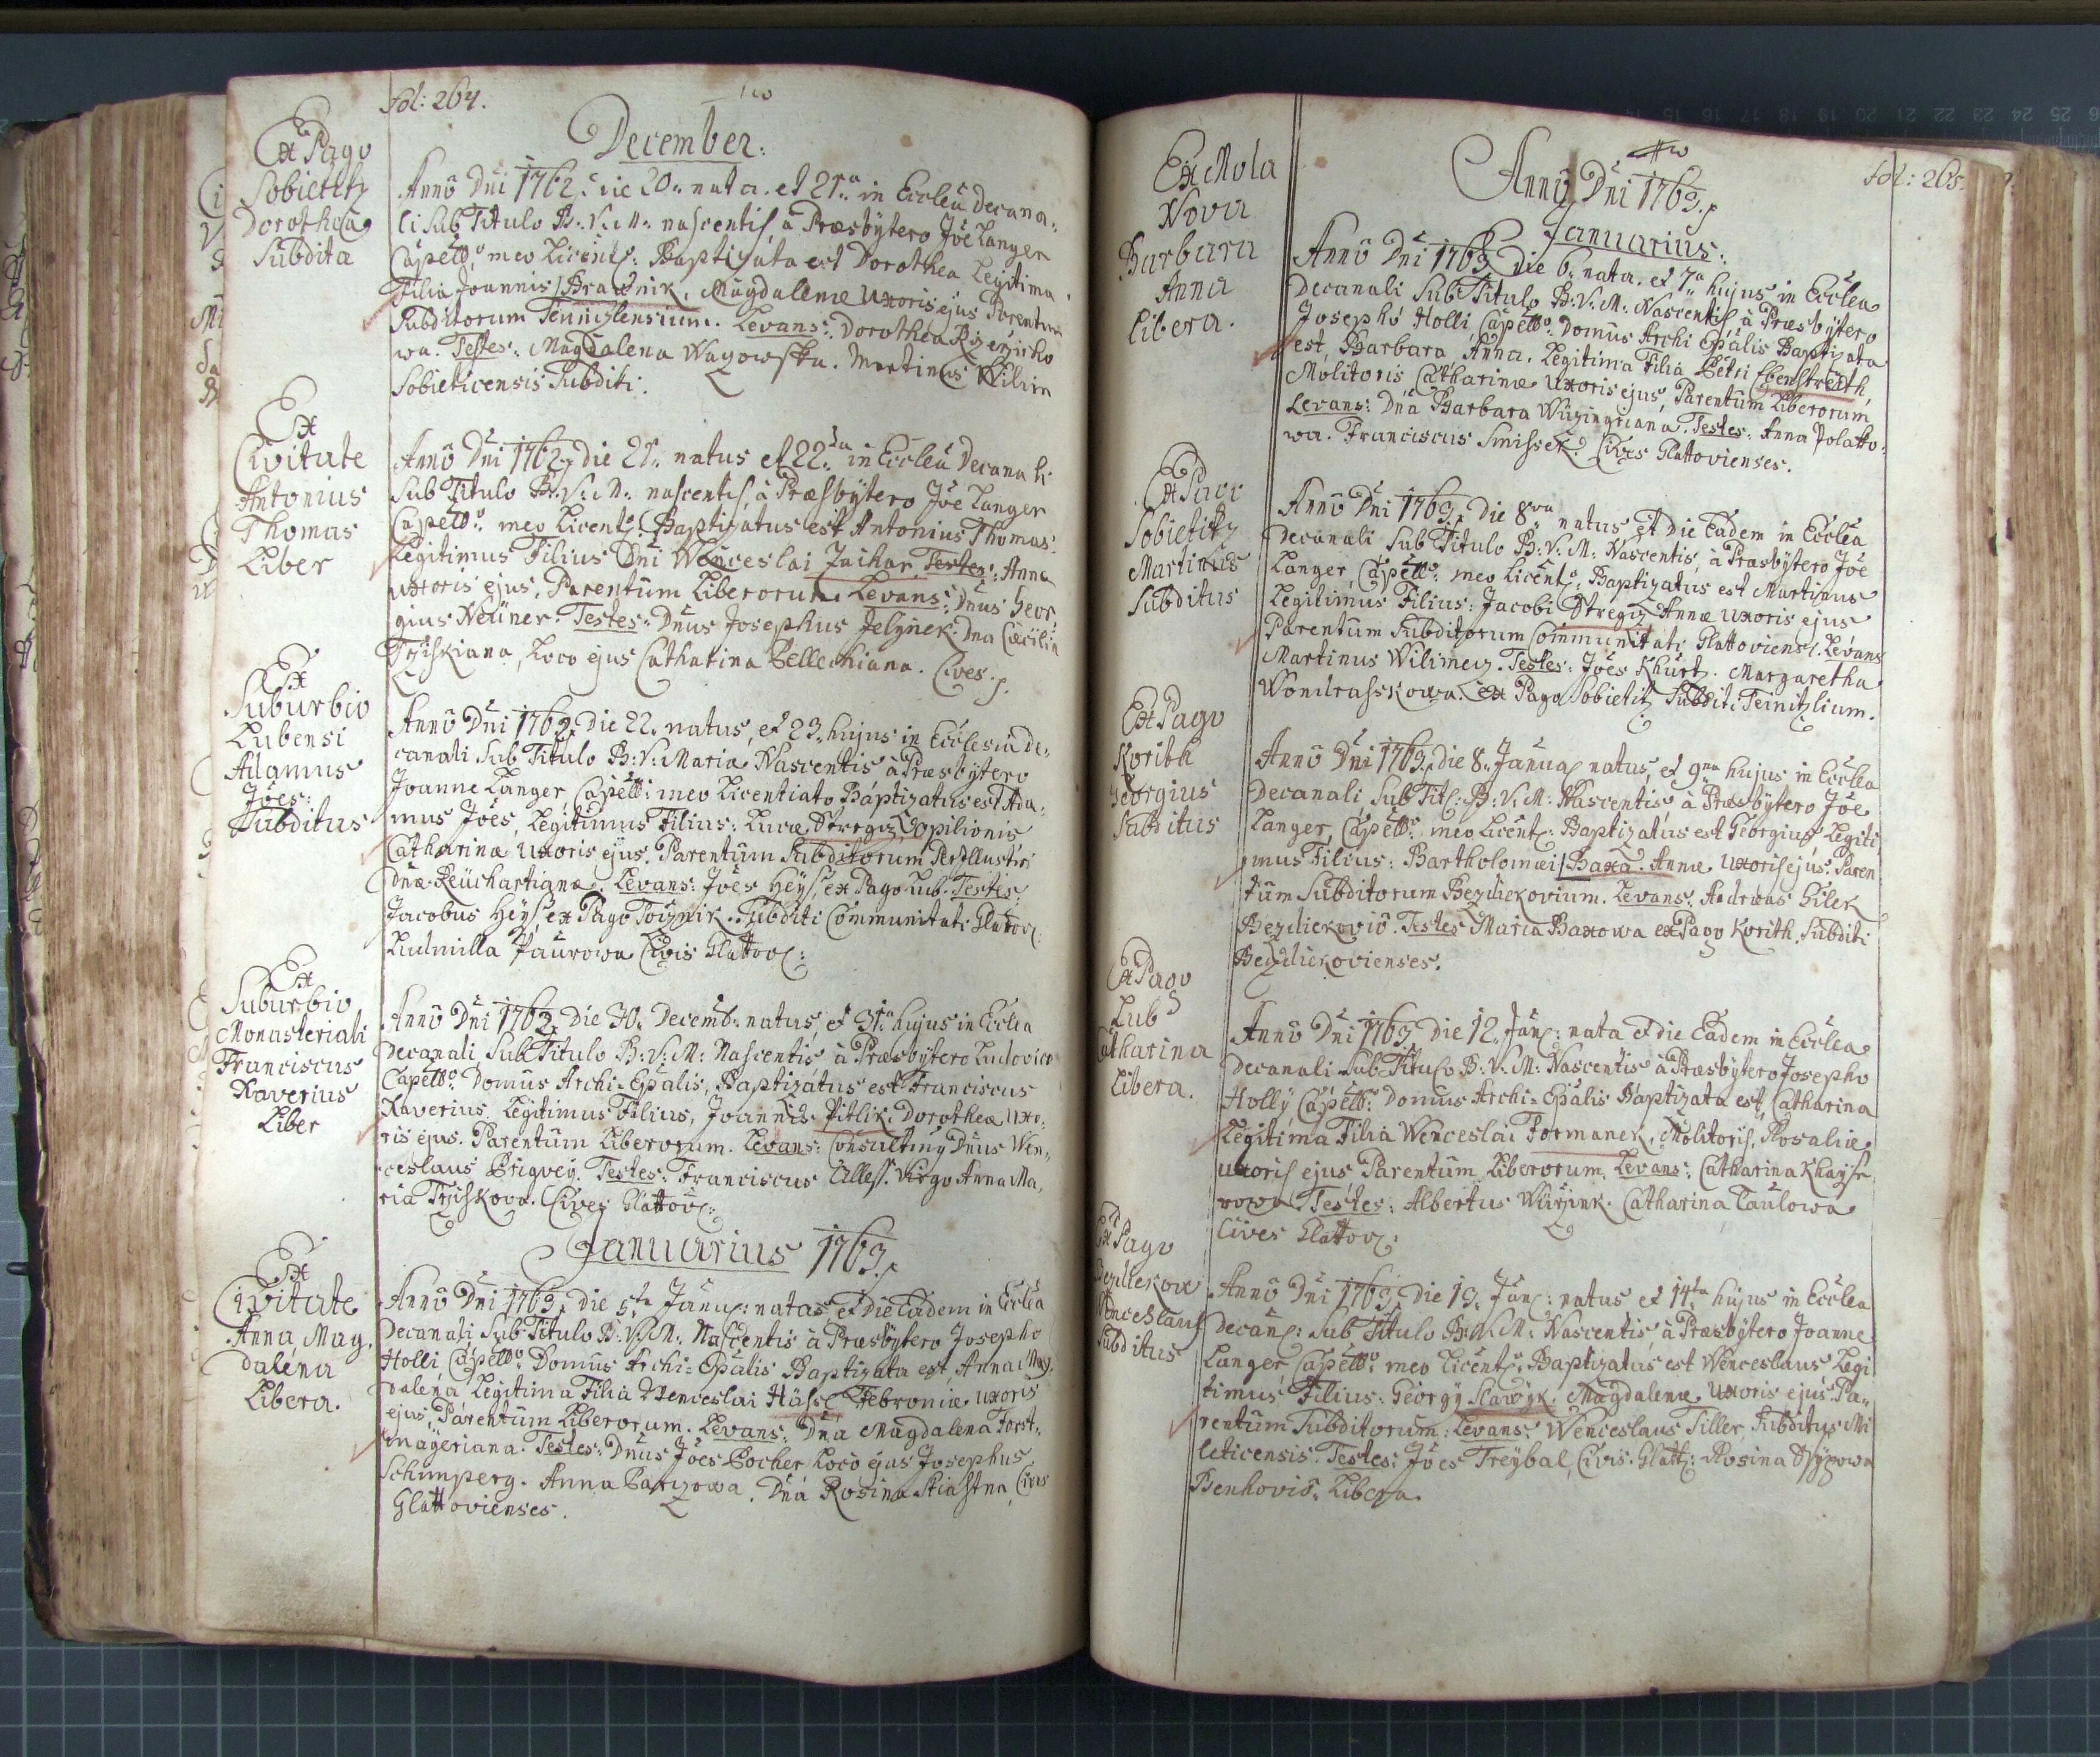 Fol: 264.
December:
Ex Pago
Sobietitz
Dorothea
Subdita
Annô Dni 1762. die 20. nata. et 21.a in Ecclea Decana-
li Sub Titulo B: V: M: nascentis à Præsbytero Joe Langer
Capello meo Licent: Baptizata est Dorothea Legitima
Filia Joannis Bradnik, Magdalenæ Uxoris ejus Parentum
Subditorum Teinizlensium. Levans: Dorothea
wa. Testes: Magdalena Wagowska. Martinus Wilim
Sobieticensis Subditi.
Ex
Civitate
Antonius
Thomas
Liber
Annô Dni 1762. die 21. natus et 22.da in Ecclea Decanali
Sub Titulo B: V: M: nascentis à Præsbytero Joe Langer
Capello meo Licent: Baptizatus est Antonius Thomas.
Legitimus Filius Dni Wenceslai Zachar Testes: Anna
uxoris ejus, Parentum Liberorum. Levans: Dnus Geor,
gius Neuner. Testes: Dnus Josephus Jelynek. Dna Cæcilia
Trziskiana, Loco ejus Catharina Pellechiana. Cives.
Ex
Suburbio
Lubensi
Adamus
Joes:
Subditus
Annô Dni 1762. Die 22. natus, et 23. hujus in Ecclesia de,
canali Sub Titulo B: V: Mariæ Nascentis à Præsbytero
Joanne Langer, Capell: meo Licentiato Baptizatus est Ada,
mus Joes, Legitimus Filius: Lucæ Stregiz Opilionis
Catharinæ Uxoris ejus. Parentum Subditorum Perillustri
Dnæ Reüchartianæ. Levans: Joes Heys ex Pago Lub. Testes:
Jacobus Heys ex Pago Toiznik. Subditi Communitati Glattov:
Ludmilla Paurowa Civis Glattov:
Ex
Suburbio
Monasteriali
Franciscus
Xaverius
Liber
Annô Dni 1762. Die 30. Decemb: natus, et 31.a hujus in Ecclea
Decanali Sub Titulo B: V: M: Nascentis à Præsbytero Ludovico
Capello Domûs Archi=Epalis, Baptizatus est Franciscus
Xaverius Legitimus Filius, Joannis Pitlik. Dorotheæ uxo:
ris ejus. Parentum Liberorum. Levans: Consultiny Dnus Wen,,
ceslaus Prigvey. Testes: Franciscus Alless. Virgo Anna Ma,
ria Trziskova. Cives Glattov:
Januarius 1763.
Ex
Civitate
Anna Mag,
dalena
Libera.
Annô Dni 1763. Die 5ta Janu: natas et Die Eadem in Ecclea
Decanali Sub Titulo B: V: M: Nascentis à Præsbytero Josepho
Holli, Capello Domûs Archi=Epalis Baptizata est, Anna Mag,
dalena Legitima Filia Wenceslai Häss Febroniæ uxoris
ejus, Parentum Liberorum. Levans: Dna Magdalena Forst,
mayeriana. Testes: Dnus Joes Pocher Loco ejus Josephus
Schimperg. Anna Parizowa. Dna Rosina Stiastna, Cives
Glattovienses.
Fol: 265.
Annô Dni 1763.
Januarius:
Ex Mola
Nova
Barbara
Anna
Libera.
Annô Dni 1763. Die 6. nata. et 7.a hujus in Ecclea
Decanali Sub Titulo B: V: M: Nascentis à Præsbytero
Josephô Holli, Capello Domûs Archi Epalis Baptizata
est, Barbara Anna. Legitima Filia Petri Ebenstreith,
Molitoris Catharinæ Uxoris ejus, Parentum Liberorum
Levans: Dna Barbara Wüzingriana. Testes: Anna Polatko,
wa. Franciscus Smissek. Cives Glattovienses.
Ex Pago
Sobietitz
Martinus
Subditus
Annô Dni 1763. Die 8va natus et Die Eadem in Ecclea
Decanali Sub Titulo B: V: M: Nascentis, à Præsbytero Joe
Langer, Capello meo Licent: Baptizatus est Martinus
Legitimus Filius: Jacobi Stregiz Annæ Uxoris ejus
Parentum Subditorum Communitati Glattoviens. Levans
Martinus Wilimez. Testes: Joes Khürt. Margaretha
Wondrasskowa. ex Pago Sobietitz Subditi Teinitzlium.
Ex Pago
Korith
Georgius
Subditus
Annô Dni 1763. Die 8. Janua natus, et 9na hujus in Ecclea
Decanali Sub Tit: B: V: M: Nascentis à Præsbytero Joe
Langer, Capello meo Licent: Baptizatus est Georgius Legiti
mus Filius: Bartholomæi Baxa. Annæ Uxoris ejus. Paren
tum Subditorum Bezdiekovium. Levans: Andreas Hilek
Bezdiekovio. Testes Maria Baxowa ex Pago Korith. Subditi
Bezdiekovienses.
Ex Pago
Lub
Catharina
Libera.
Annô Dni 1763. Die 12. Jan: nata et die Eadem in Ecclea
Decanali Sub Titulo B: V: M: Nascentis à Præsbytero Josepho
Holly, Capell: Domus Archi=Epalis Baptizata est, Catharina
Legitima Filia Wenceslai Formanek, Molitoris, Rosaliæ
uxoris ejus Parentum Liberorum. Levans: Catharina Khayse
rowa Testes: Albertus Würzink. Catharina Taulowa
Cives Glattov:
Ex Pago
Bezdiekow
Wenceslaus
Subditus
Annô Dni 1763. Die 13. Jan: natus, et 14ta hujus in Ecclea
Decan: Sub Titulo B: V: M: Nascentis à Præsbytero Joanne
Langer, Capello meo Licent: Baptizatus est Wenceslaus Legi
timus Filius: Georgy Slawyk. Magdalenæ Uxoris ejus. Pa,,
rentum Subditorum: Levans: Wenceslaus Tiller, Subditus Mi
leticensis. Testes: Joes Treybal, Civis. Glatt: Rosina
Benhovio. Libera.